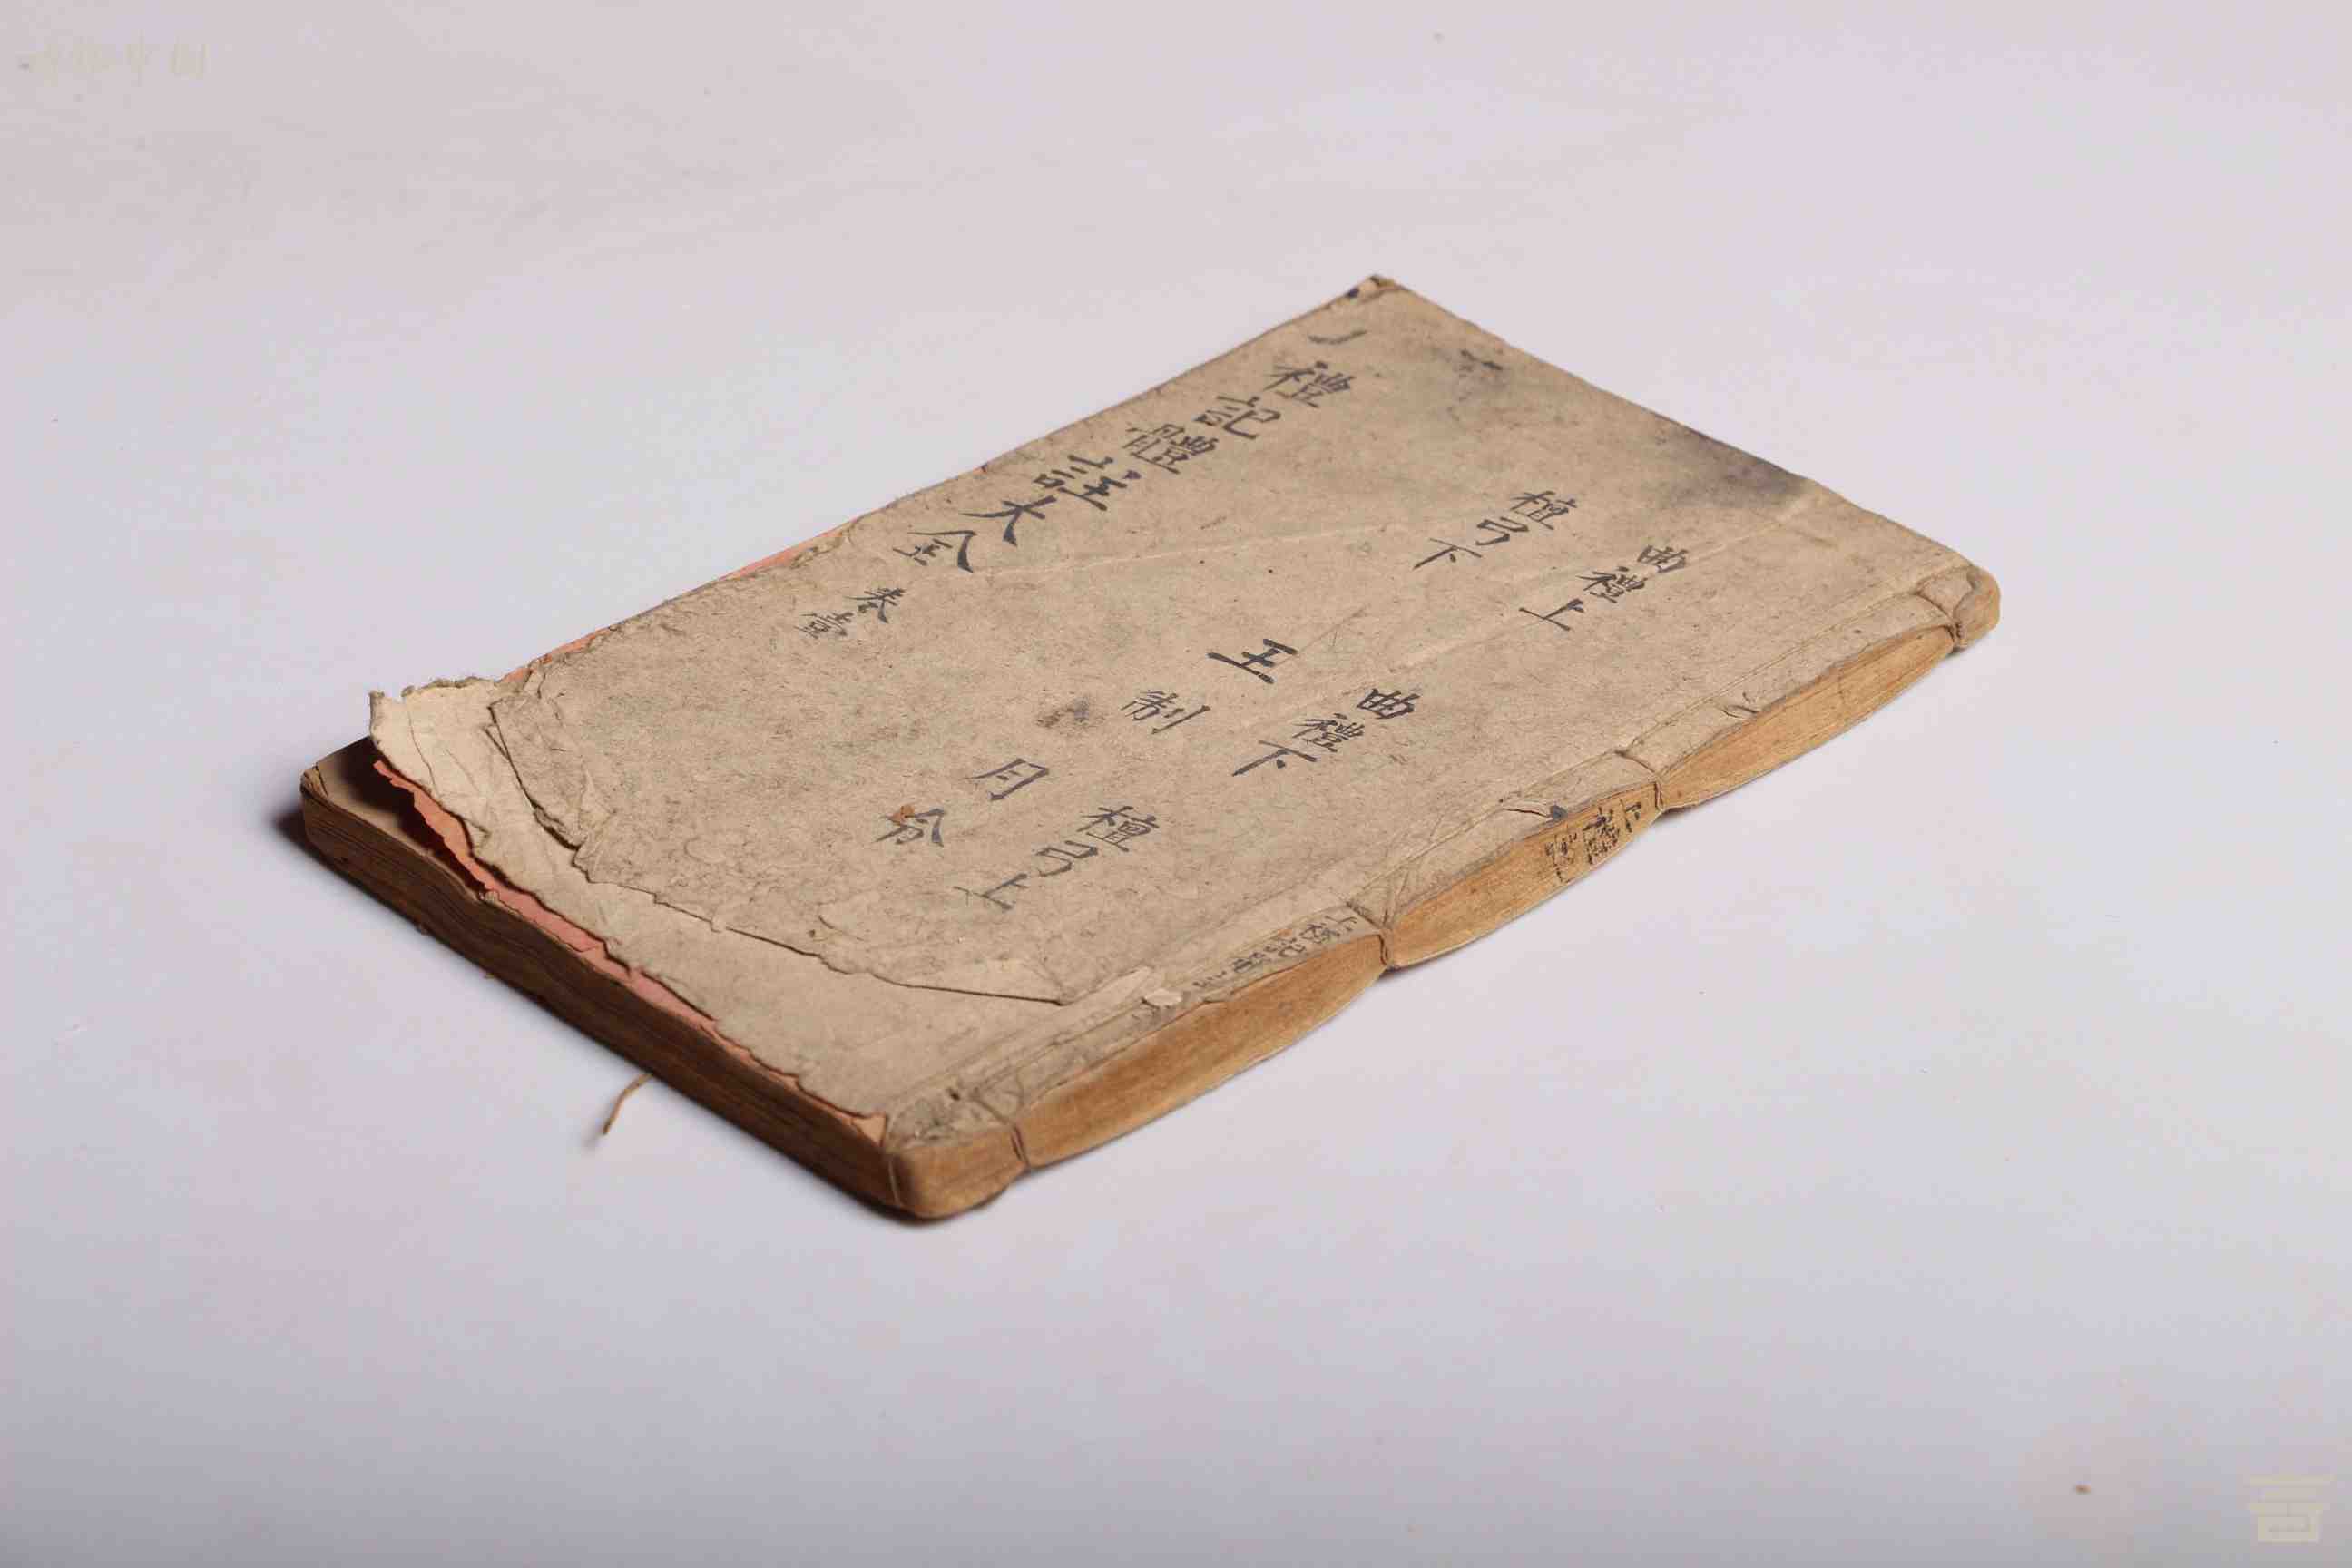 曲禮上 曲禮下 檀弓上
檀弓下 王制 月令
禮記體註大全 卷壹